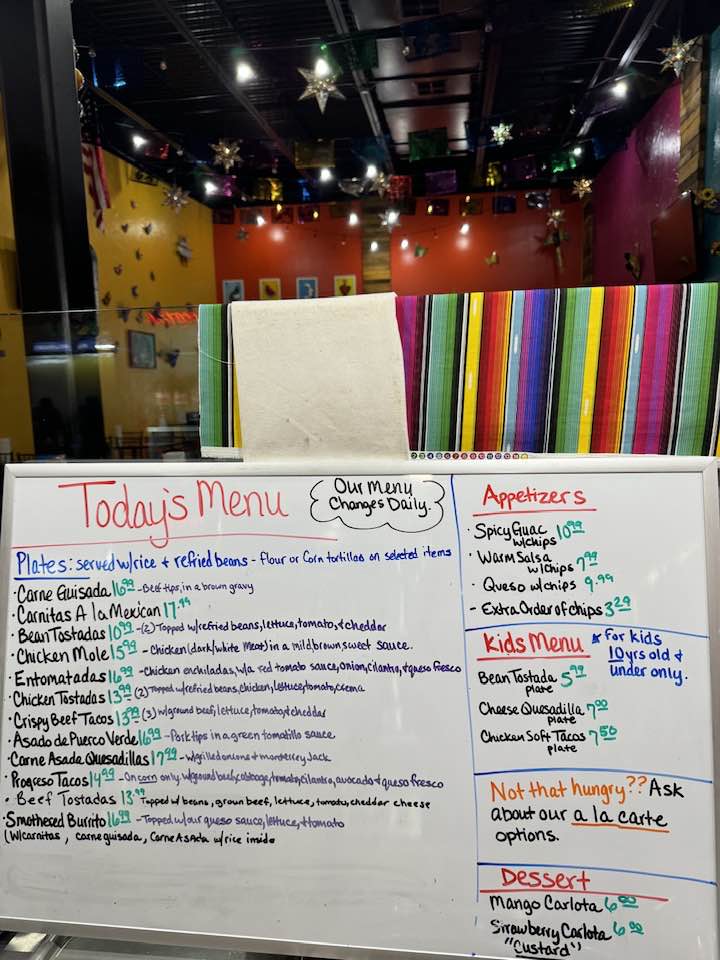 Today's Menu
Our Menu
Changes Daily.
Plates: served w/rice + refried beans - flour or Corn tortillas on selected items
· Carne Guisada 16.99 - Beef tips, in a brown gravy
· Carnitas A la Mexican 17.99
· Bean Tostadas 10.99 - (2) Topped w/refried beans, lettuce, tomato, + cheddar
· Chicken Mole 15.99 - Chicken (dark/white Meat) in a mild/brown sweet sauce.
· Entomatadas 16.99 - Chicken enchiladas, w/a red tomato sauce, onion, cilantro, + queso fresco
· Chicken Tostadas 13.99 (2) Topped w/refried beans, chicken, lettuce, tomato, crema
· Crispy Beef Tacos 13.99 (3) w/ground beef, lettuce, tomato, + cheddar
· Asado de Puerco Verde 16.99 - Pork tips in a green tomatillo sauce
· Carne Asada Quesadillas 17.99 - w/grilled onions + monterrey Jack
· Progreso Tacos 14.99 - On corn only w/ground beef, cabbage, tomato, cilantro, avocado + queso fresco
· Beef Tostadas 13.99 Topped w/ beans, groun beef, lettuce, tomato, cheddar cheese
· Smothered Burrito 16.99 - Topped w/our queso sauce, lettuce, + tomato
(w/carnitas, carne guisada, Carne Asada w/rice inside
Appetizers
· Spicy Guac 10.99
w/chips
· Warm Salsa 7.99
w/chips
· Queso w/chips 9.99
- Extra Order of chips 3.29
Kids Menu * For kids
10 yrs old +
under only.
Bean Tostada 5.99
plate
Cheese Quesadilla 7.00
plate
Chicken Soft Tacos 7.50
plate
Not that hungry?? Ask
about our a la carte
options.
Dessert
Mango Carlota 6.00
Strawberry Carlota 6.00
"Custard"